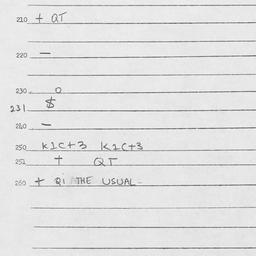 210 + QT
220 —
230 o
231 $
240 —
250 K1C+3 K1C+3
251 + QT
260 + Qi THE USUAL -